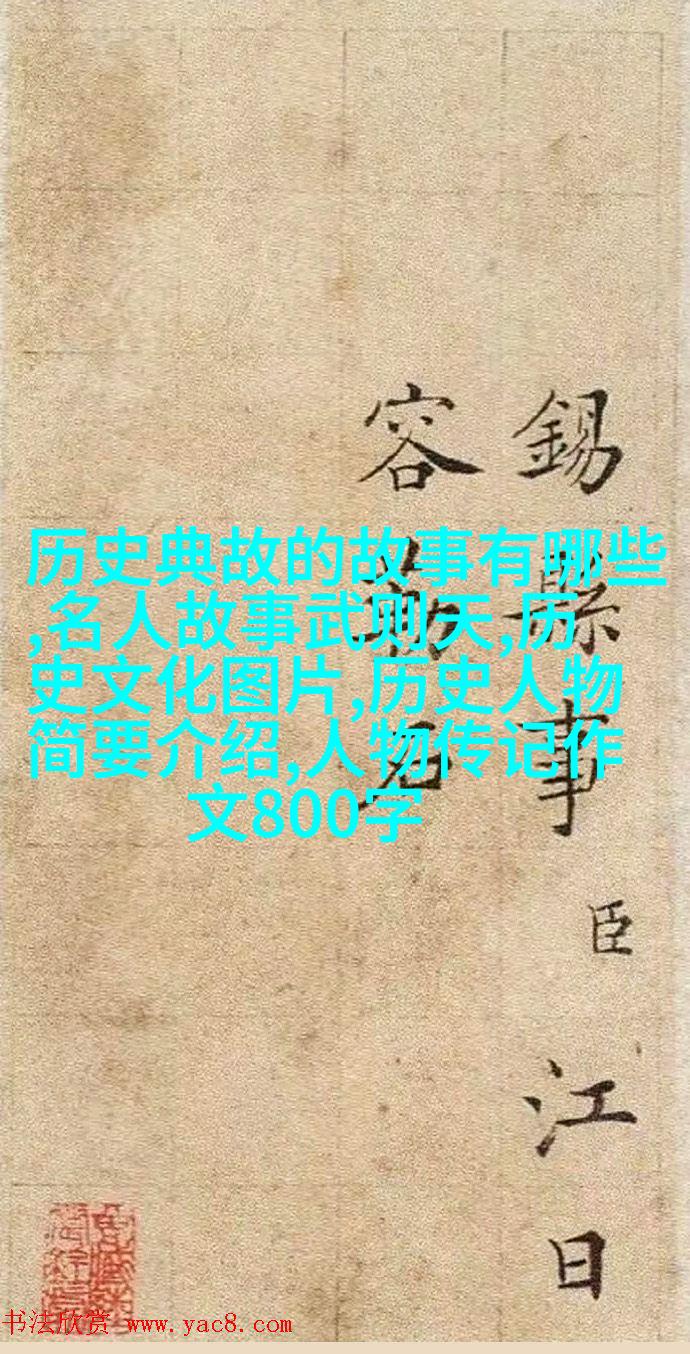 历史典故的故事有哪些
,名人故事武则天,历
史文化图片,历史人物
简要介绍,人物传记作
文800字
錫縣事臣江日
容勒石
书法欣赏 www.yac8.com